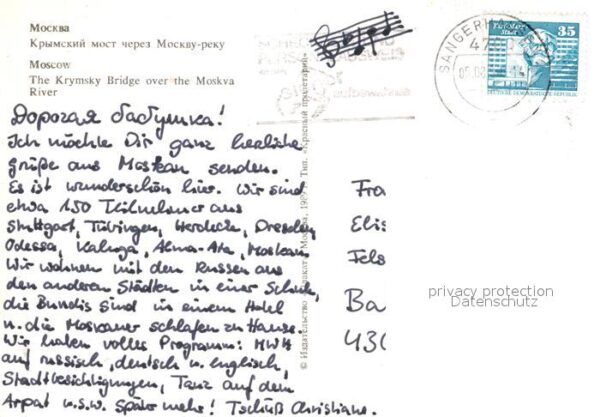 Москва
Крымский мост через Москву-реку
Moscow
The Krymsky Bridge over the Moskva
River
Дорогая бабушка!
Ich möchte Dir ganz herzliche
Grüße aus Moskau senden.
Es ist wunderschön hier. Wir sind
etwa 150 Teilnehmer aus
Stuttgart, Tübingen, Herdecke, Dresden,
Odessa, Kaluga, Alma-Ata, Moskau
Wir wohnen mit den Russen aus
den anderen Städten in einer Schule,
die Bundis sind in einem Hotel
u. die Moskauer schlafen zu Hause.
Wir haben volles Programm: MWM
auf russisch, deutsch u. englisch,
Stadtbesichtigungen, Tanz auf dem
Arpat u.s.w. Später mehr! Tschüß Christiane.
Тип. «Красный пролетарий»
SANGERHA
47
35
DEUTSCHE DEMOKRATISCHE REPUBLIK
Fra
Elis
Fels
Ba
430
privacy protection
Datenschutz